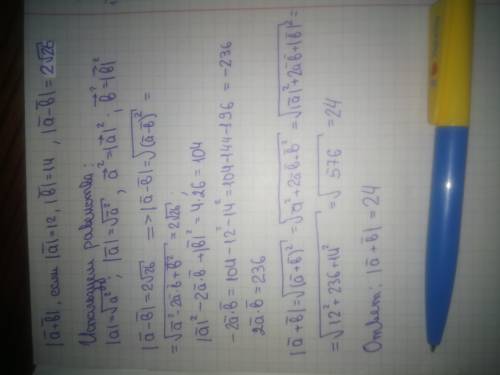 |a̅+b̅|, если |a̅|=12, |b̅|=14, |a̅-b̅|=2√26
Используем равенства:
|a|=√a², |a̅|=√a̅², a⃗²=|a⃗|², b⃗²=|b⃗|²
|a̅-b̅|=2√26 => |a̅-b̅|=√(a̅-b̅)² =
=√a̅²-2a̅·b̅+b̅² = 2√26,
|a̅|²-2a̅·b̅+|b̅|²=4·26=104
-2a̅·b̅=104-12²-14²=104-144-196=-236
2a̅·b̅=236
|a̅+b̅|=√(a̅+b̅)²=√a̅²+2a̅b̅+b̅²=√|a̅|²+2a̅b̅+|b̅|²=
=√12²+236+14²=√576=24
Ответ: |a̅+b̅|=24